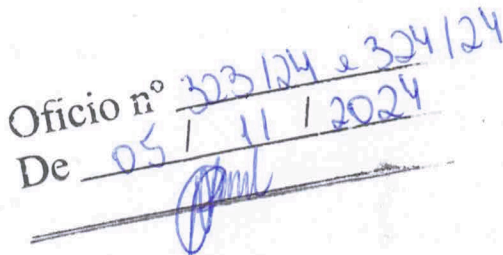 Oficio nº 323/24 e 324/24
De 05 / 11 / 2024